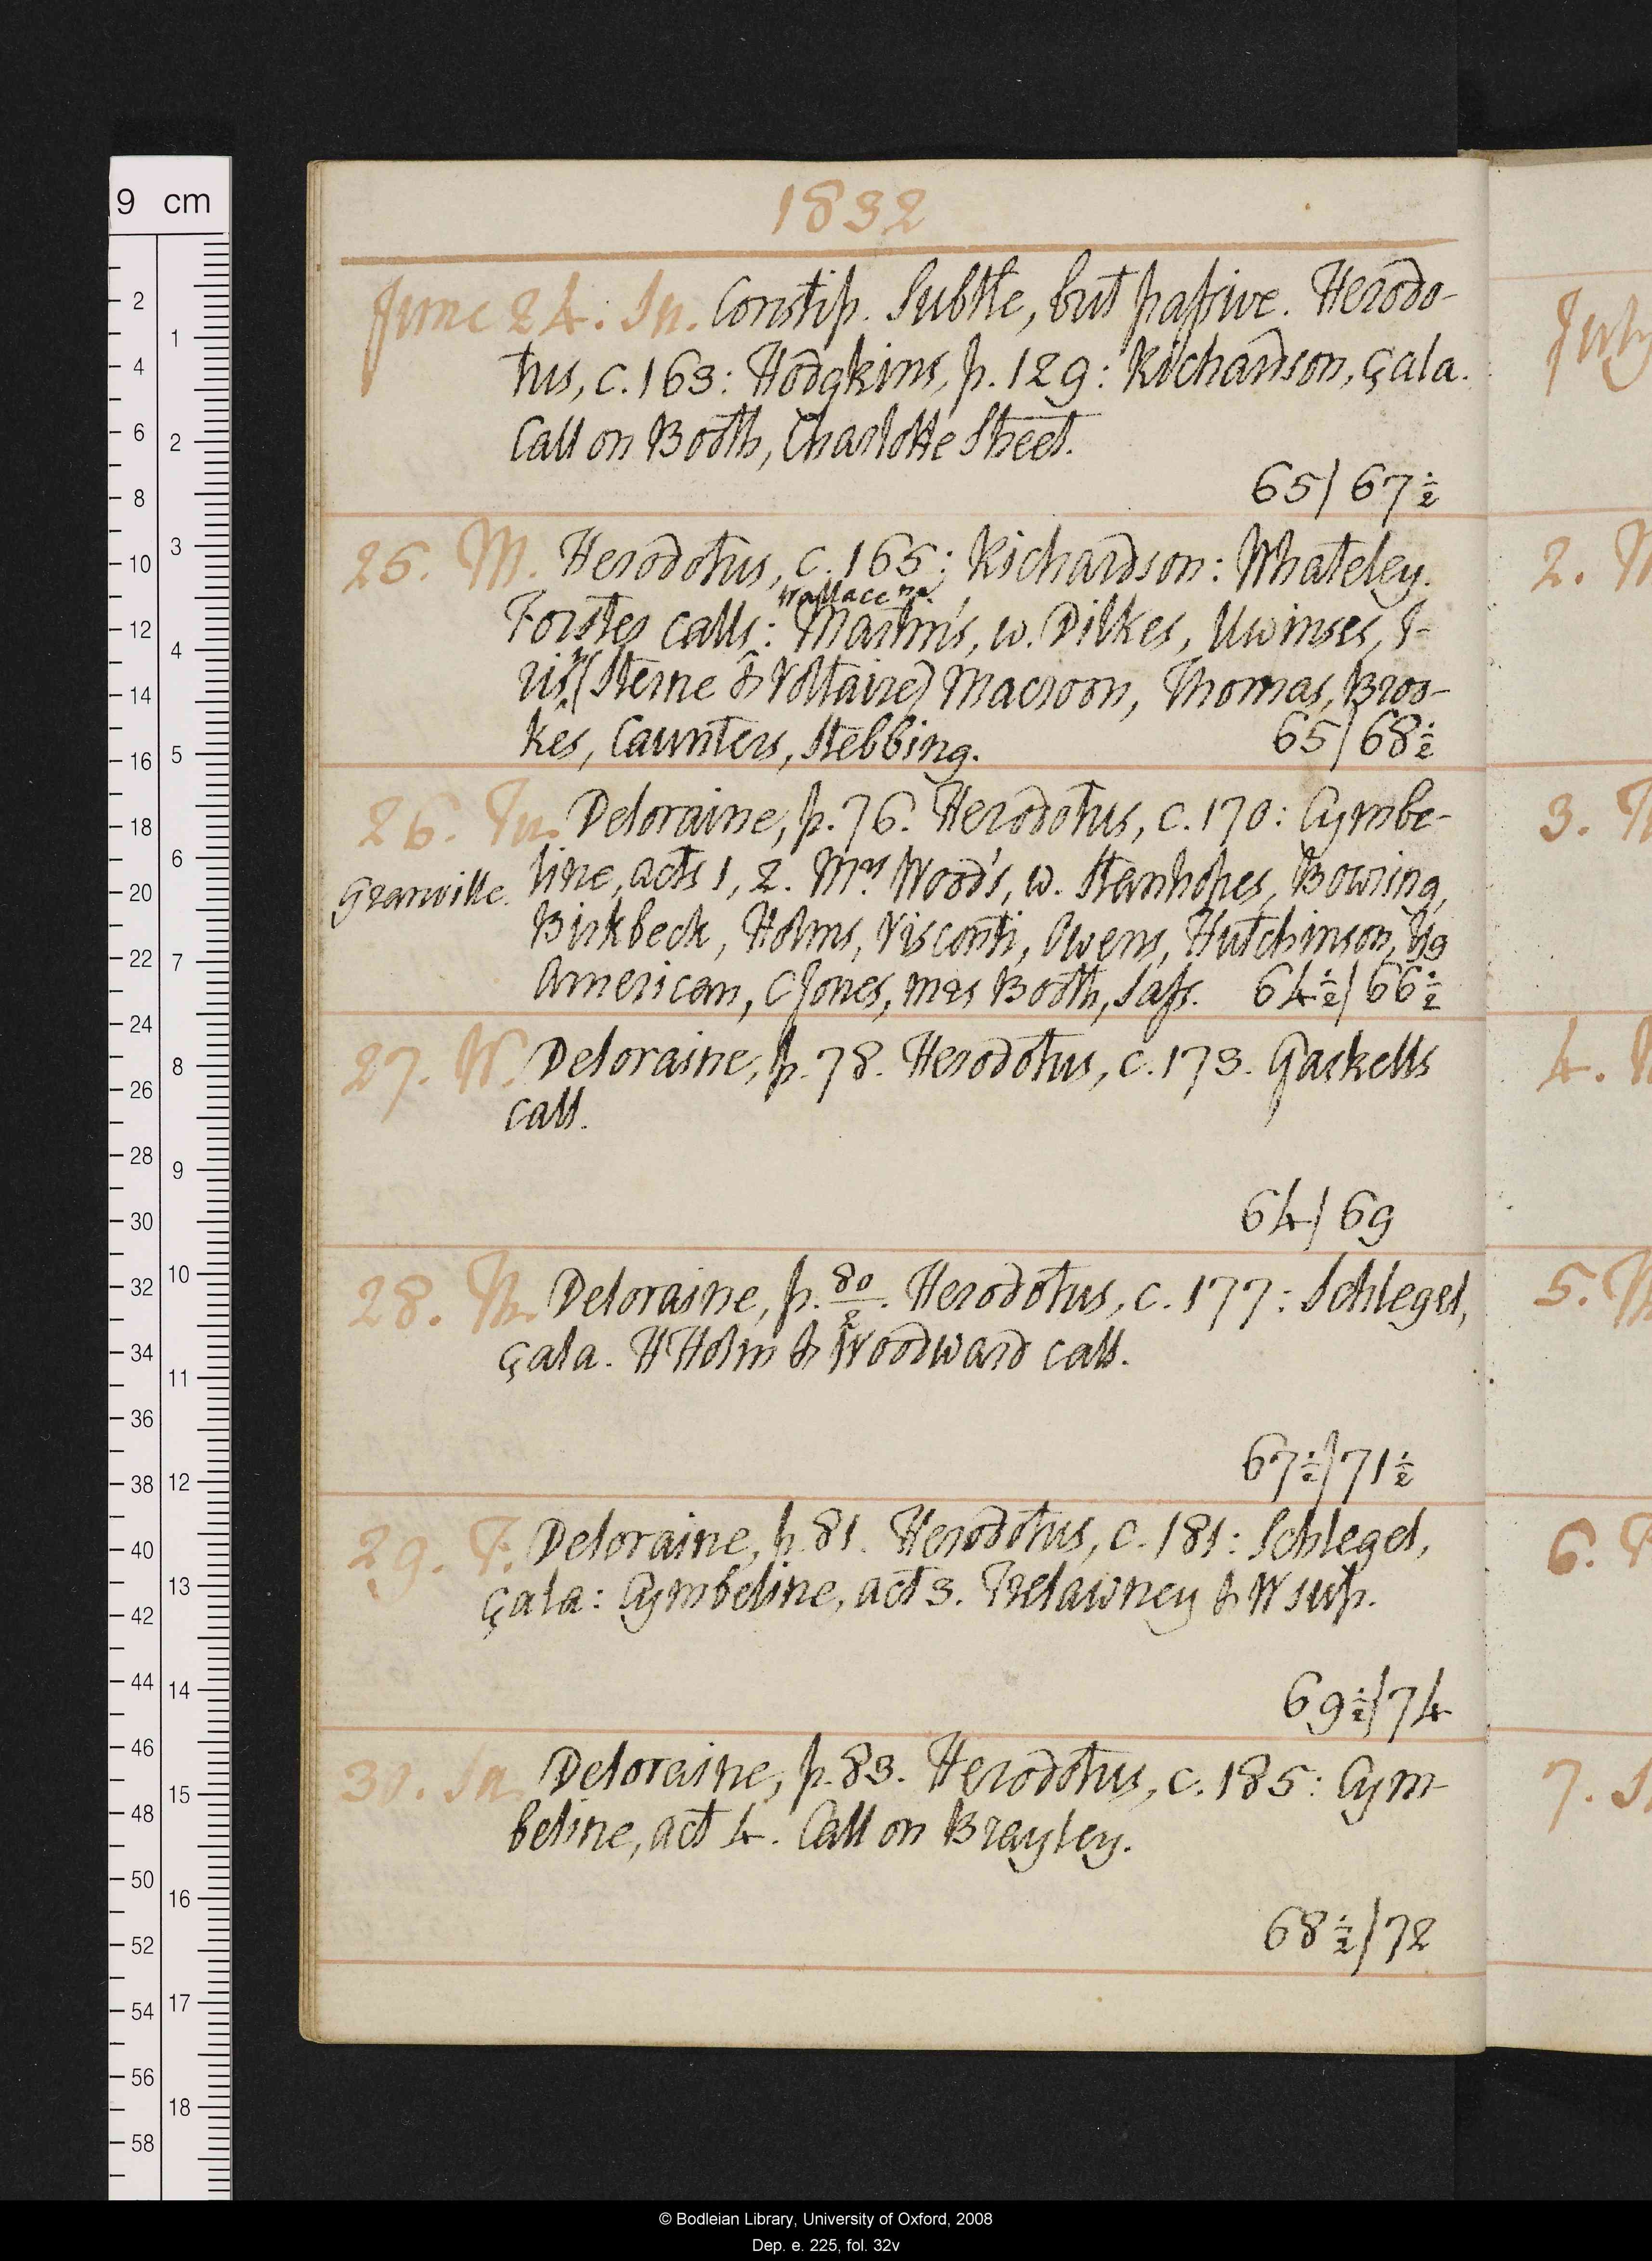 9 cm
1832
June 24. Su. Constip. Subtle, but passive. Herodo-
tus, c. 163: Hodgkins, p. 129: Richardson, çala.
Call on Booth, Charlotte Street.
65/ 67½
25. M. Herodotus, c. 165: Richardson: Whateley.
Wallace na
Forster calls: Martin's, w. Dilkes, Uwinses, I-
(Sterne & Voltaire) Maceroon, Thomas, Broo-
kes, Caunters, Stebbing. 65/ 68½
26. Tu. Deloraine, p. 76. Herodotus, c. 170: Cymbe-
Granville. line, acts 1, 2. Mrs Wood's, w. Stanhopes, Bowring,
Birkbeck, Holms, Visconti, Owens, Hutchinson, yg
American, CJones, mrs Booth, Sass. 64½/ 66½
27. W. Deloraine, p. 78. Herodotus, c. 173. Gaskells
call.
64/ 69
28. Th. Deloraine, p. 80/2. Herodotus, c. 177: Schlegel,
çala. HHolm & Woodward call.
67½/ 71½
29. F. Deloraine, p. 81. Herodotus, c. 181: Schlegel,
çala: Cymbeline, act 3. Trelawney & W sup.
69½/ 74
30. Sa. Deloraine, p. 83. Herodotus, c. 185: Cym-
beline, act 4. Call on Brayley.
68½/ 72
July
2. M
3. T
4. W
5. Th
6. F
7. S
© Bodleian Library, University of Oxford, 2008
Dep. e. 225, fol. 32v